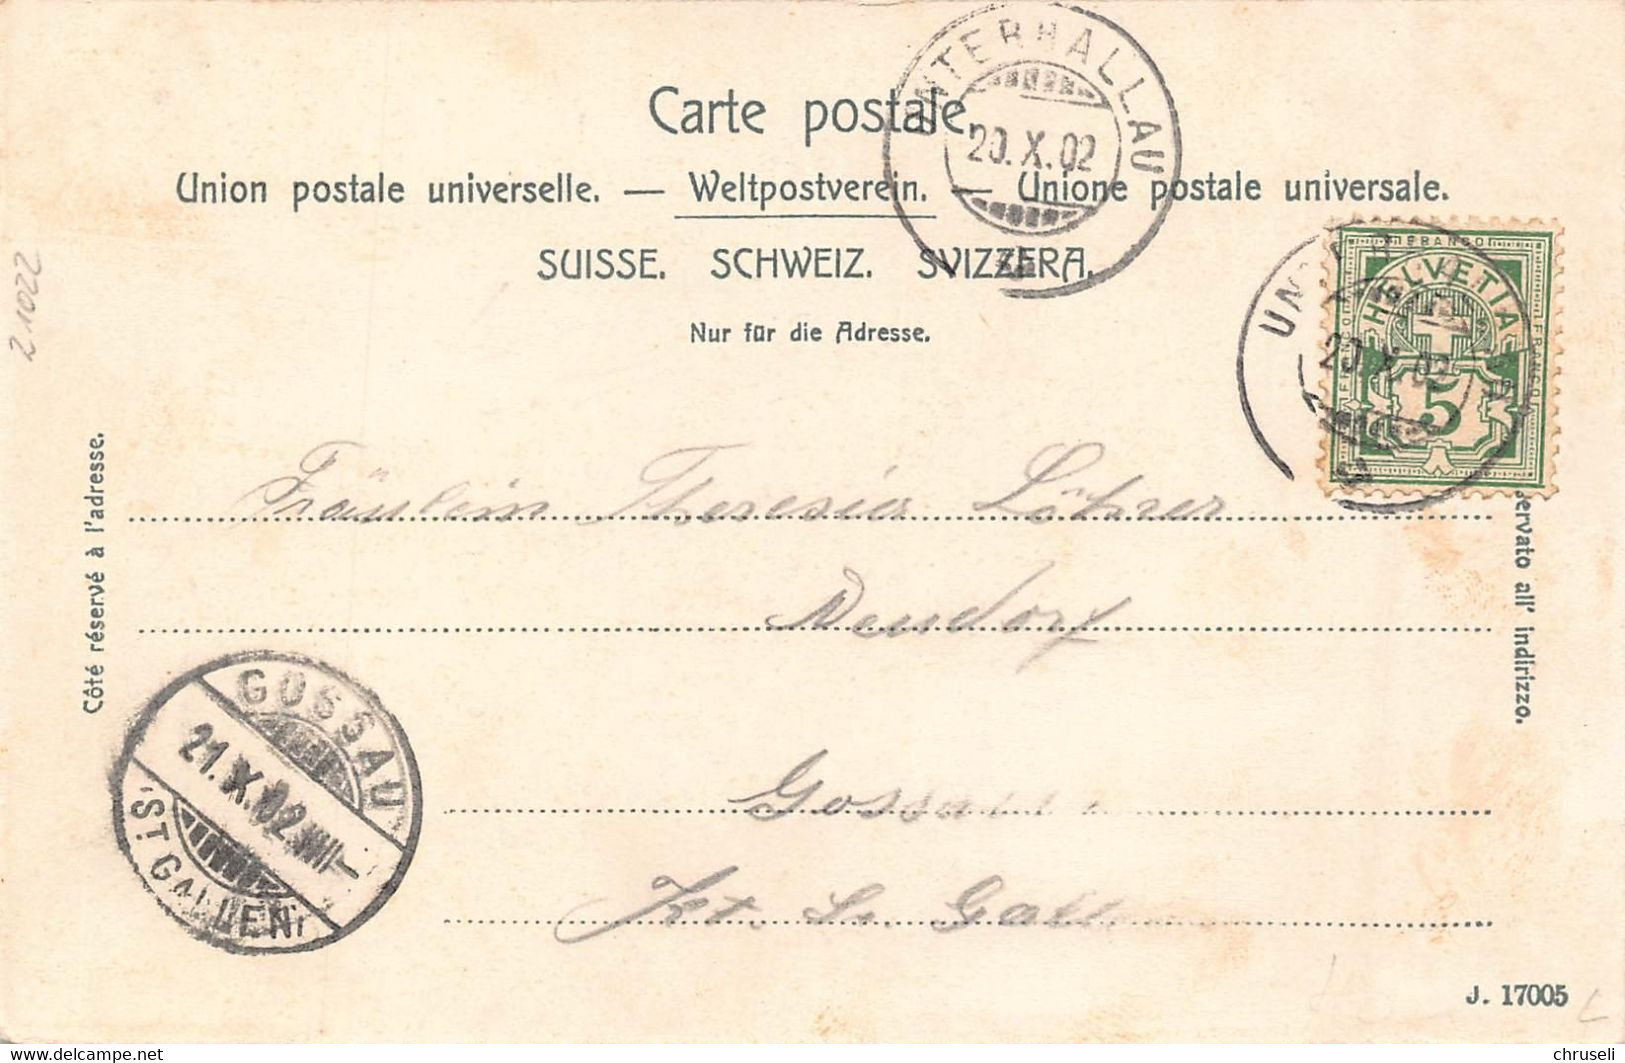 Carte postale.
Union postale universelle. — Weltpostverein. — Unione postale universale.
SUISSE. SCHWEIZ. SVIZZERA.
Nur für die Adresse.
UNTERHALLAU
20.X.02
FRANCO
HELVETIA
5
20.X.02
21022
Côté réservé à l'adresse.
servato all' indirizzo.
Fräulein Theresia Löhrer
Neudorf
Gossau
Kt. St. Gall
GOSSAU
21.X.02.VIII-
(ST. GALLEN)
J. 17005
delcampe.net
chruseli